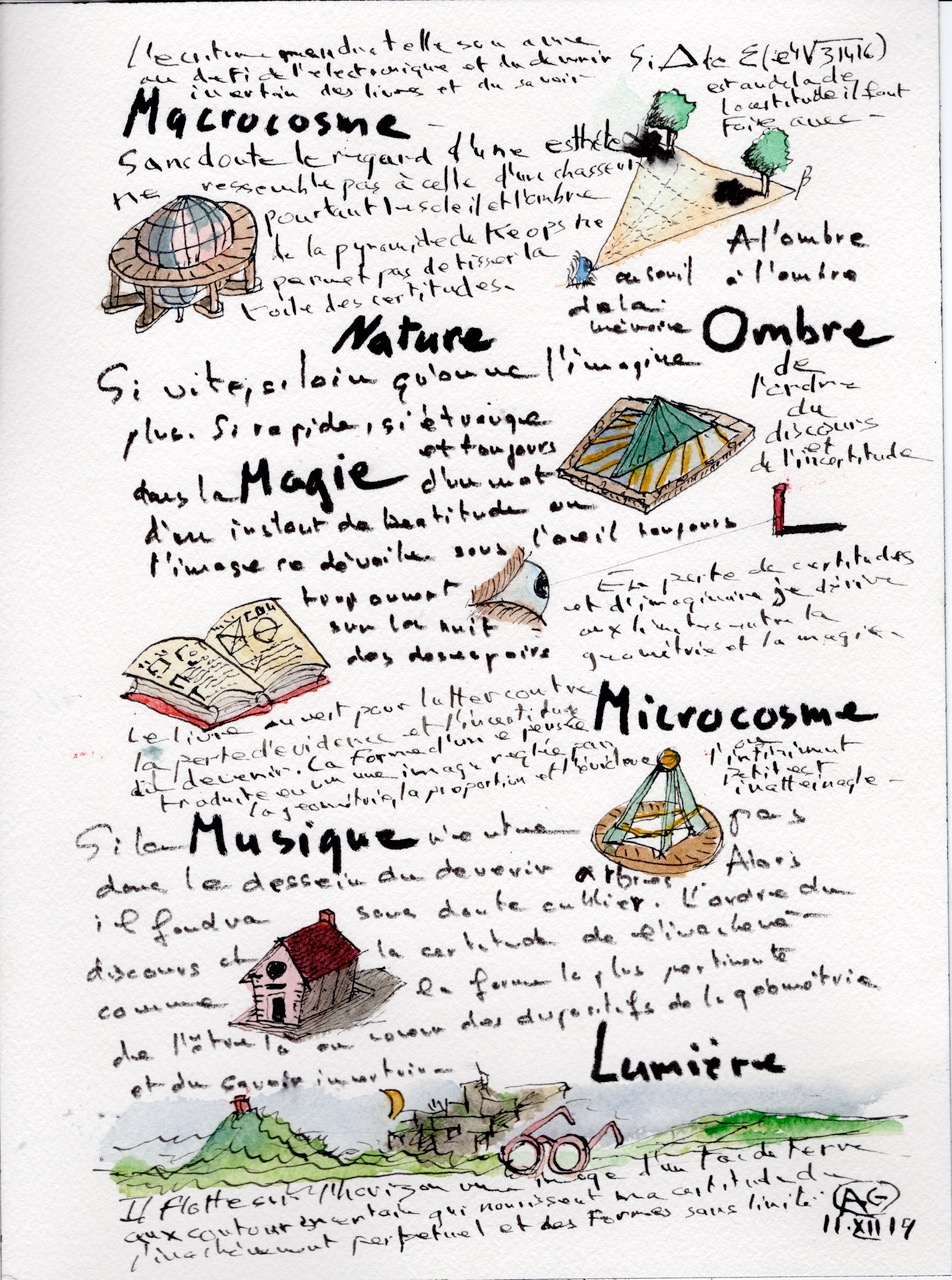 l'écriture rendra t elle son âme
au défi de l'électronique et du devenir
incertain des livres et du savoir
Si Δ to Σ(ie4√31416)
est au delà de
la certitude il faut
faire avec -
Macrocosme -
Sans doute le regard d'une esthète
ne ressemble pas à celle d'un chasseur
pourtant le soleil et l'ombre
de la pyramide de Keops ne
permet pas de tisser la
toile des certitudes.
β
au seuil
de la
mémoire
A l'ombre
à l'ombre
Nature
Ombre
de
l'ordre
du
discours
et
de l'incertitude
Si vite, si loin qu'on ne l'imagine
plus. Si rapide, si étrange
et toujours
dans la Magie d'un mot
d'un instant de beatitude ou
l'image se dévoile sous l'oeil toujours
trop ouvert
sur la nuit
des desespoirs
En perte de certitudes
et d'imaginaire je dérive
aux limites entre la
géométrie et la magie.
Le livre ouvert pour lutter contre
la perte d'évidence et l'incertitude
du devenir. La forme d'une pensée
traduite en une image réglée par
la géométrie, la proportion et l'évidence
Microcosme
ou
l'infiniment
petit est
inatteinable -
Si la Musique n'entre pas
dans le dessein du devenir arbres Alors
il faudra sans doute oublier. L'ordre du
discours et la certitude de l'inachevé
comme la forme la plus pertinente
de l'être là au coeur des dispositifs de la géométrie
et du savoir incertain -
Lumière
Il flotte sur l'horizon une image d'un Toi de terre
aux contours incertain qui nourissent ma certitude d
l'inachèvement perpetuel et des formes sans limite
AG
11.XII 19